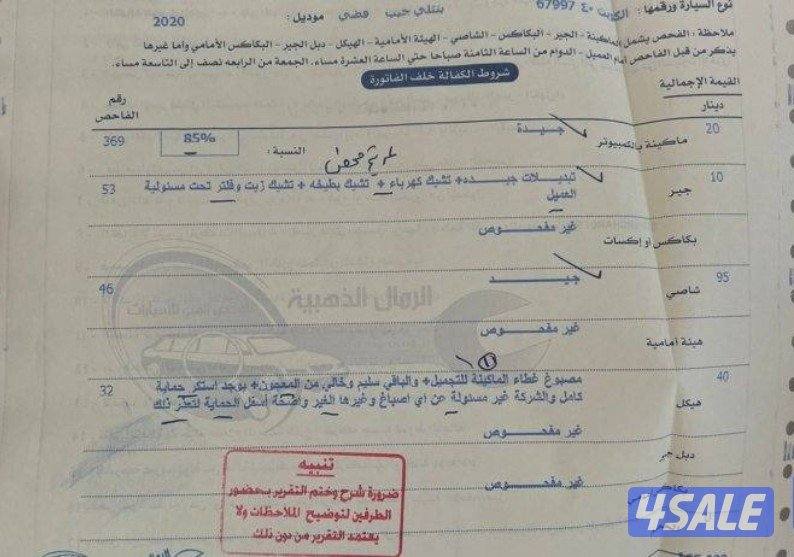 نوع السيارة ورقمها : الكويت ٤٠ 67997 بنتلي جيب فضي موديل : 2020
ملاحظة : الفحص يشمل الماكينة - الجير - البكاكس - الشاصي - الهيئة الأمامية - الهيكل - دبل الجير - البكاكس الأمامي وأما غيرها
يذكر من قبل الفاحص أمام العميل - الدوام من الساعة الثامنة صباحا حتى الساعة العشرة مساء. الجمعة من الرابعه نصف إلى التاسعة مساء.
شروط الكفالة خلف الفاتورة
القيمة الإجمالية
دينار
رقم الفاحص
20 ماكينة بالكمبيوتر جيدة
النسبة : 85% 369
10 جير تبديلات جيده + تشيك كهرباء + تشيك بطيخه + تشيك زيت وفلتر تحت مسئولية 53
العميل
بكاكس أو إكسات غير مفحوص
95 شاصي جيد 46
الرمال الذهبية
هيئة أمامية غير مفحوص
40 هيكل مصبوغ غطاء الماكينة للتجميل + والباقي سليم وخالي من المعجون + يوجد استكر حماية 32
كامل والشركة غير مسئولة عن اي اصباغ وغيرها الغير واضحة أسفل الحماية لتعذر ذلك
دبل جير غير مفحوص
غير مفحوص
تنبيه
ضرورة شرح وختم التقرير بحضور
الطرفين لتوضيح الملاحظات ولا
يعتمد التقرير من دون ذلك
4SALE